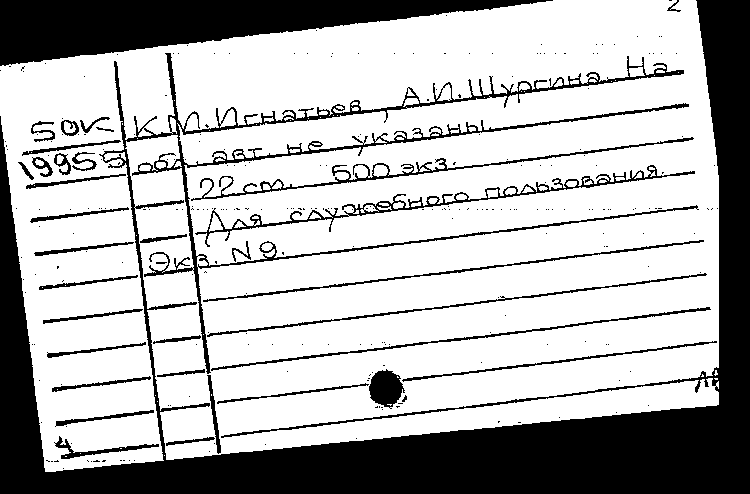 2
50К К.М.Игнатьев, А.И.Шургина. На
19955 обл. авт. не указаны.
22 cm. 500 экз.
Для служебного пользования.
Экз. N 9.
4